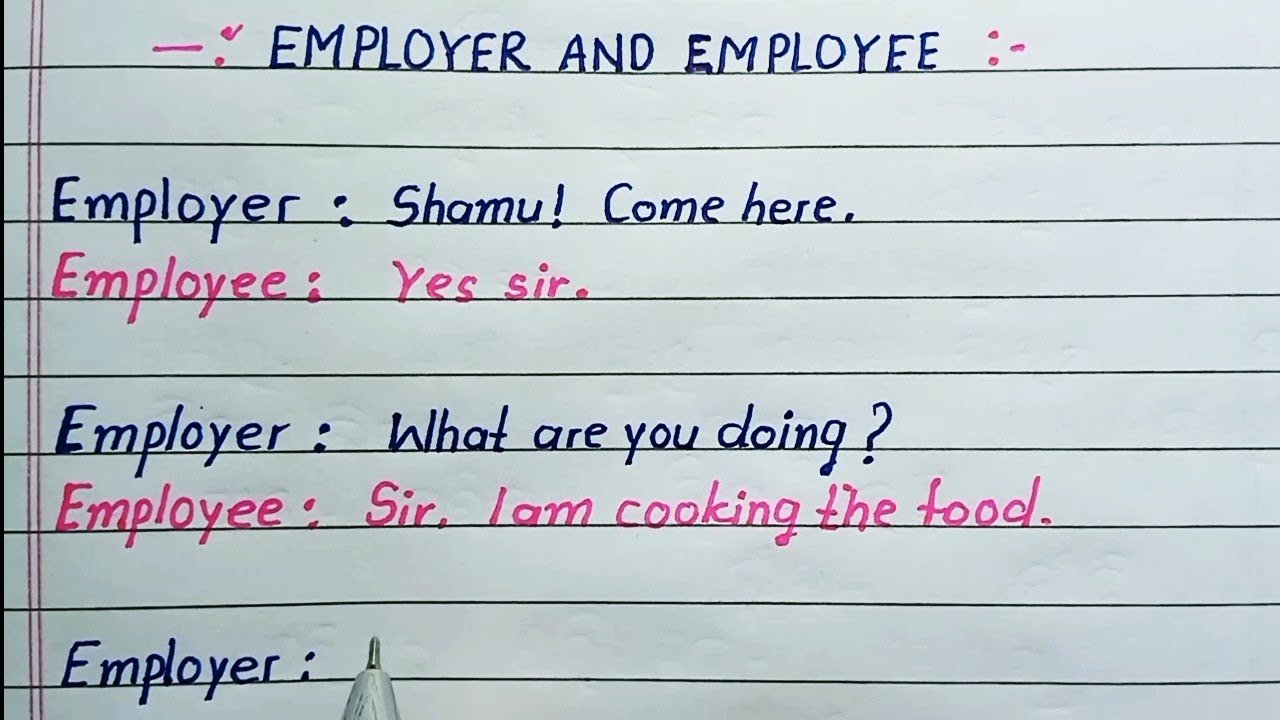 —: EMPLOYER AND EMPLOYEE :-
Employer : Shamu! Come here.
Employee : Yes sir.
Employer : What are you doing?
Employee : Sir. I am cooking the food.
Employer :